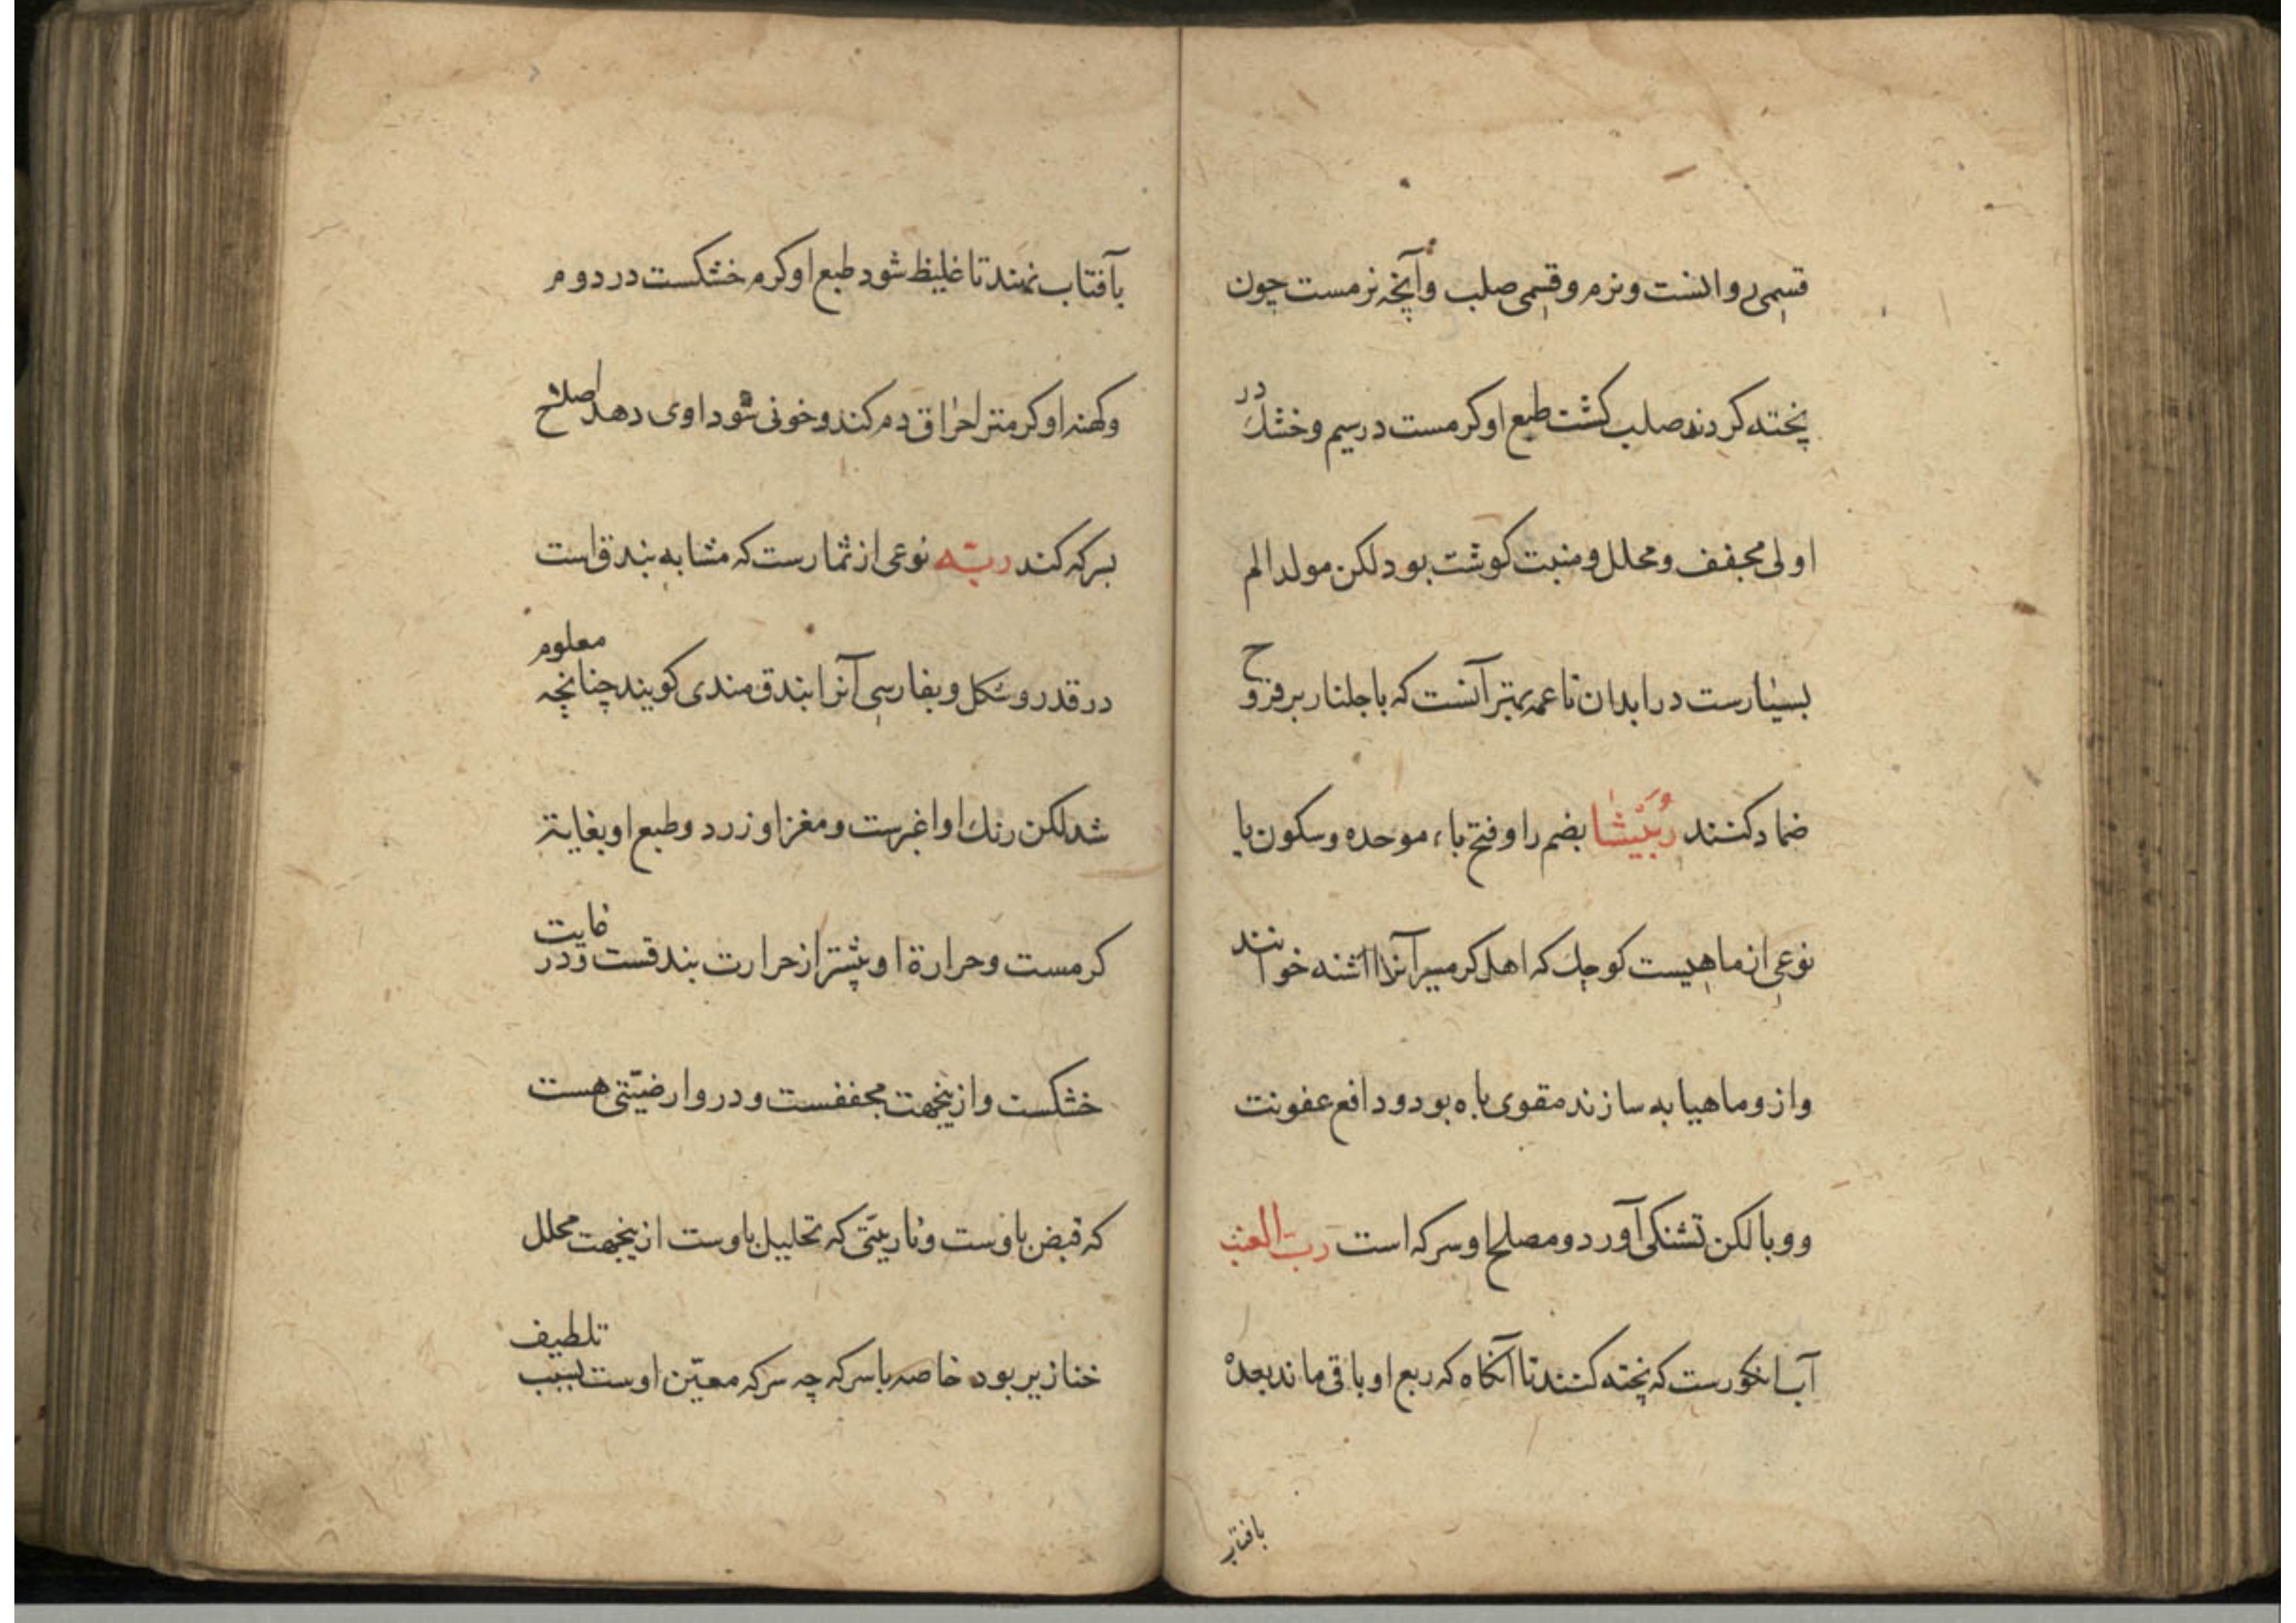 قسمی روانست ونرم وقسمی صلب وآنچه نرمست چون
پخته کردند صلب کشت طبع او کرمست در سیم وخشک در
اولی مجفف ومحلل ومنبت کوشت بود لکن مولد الم
بسیارست در ابدان ناعمه بهتر آنست که با جلنار بر قروح
ضماد کنند رُبَیْثا بضم را وفتح باء موحده وسکون یا
نوعی از ماهیست کوچک که اهل کرمسیر آنرا اشنه خوانند
واز وماهیابه سازند مقوی باه بود ودافع عفونت
ووبا لکن تشنکی آورد ومصلح او سرکه است ربّ العنب
آب انکورست که پخته کنند تا آنکاه که ربع او باقی ماند بعده
بافتاب
بآفتاب نهند تا غلیظ شود طبع او کرم خشکست در دوم
وکهنه او کرمتر احراق دم کند وخونی سوداوی دهد اصلاح
بسرکه کند رتبه نوعی از ثمارست که مشابه بندق است
در قدر وشکل وبفارسی آنرا بندق هندی کویند چنانچه معلوم
شد لکن رنک او اغبرست ومغز او زرد وطبع او بغایة
کرمست وحرارة او بیشتر از حرارت بندقست ودر غایت
خشکست وازینجهت مجففست ودر وارضیّتی هست
که قبض باوست وناریّتی که تحلیل باوست ازینجهت محلل
خنازیر بود خاصه با سرکه چه سرکه معیّن اوست بسبب تلطیف